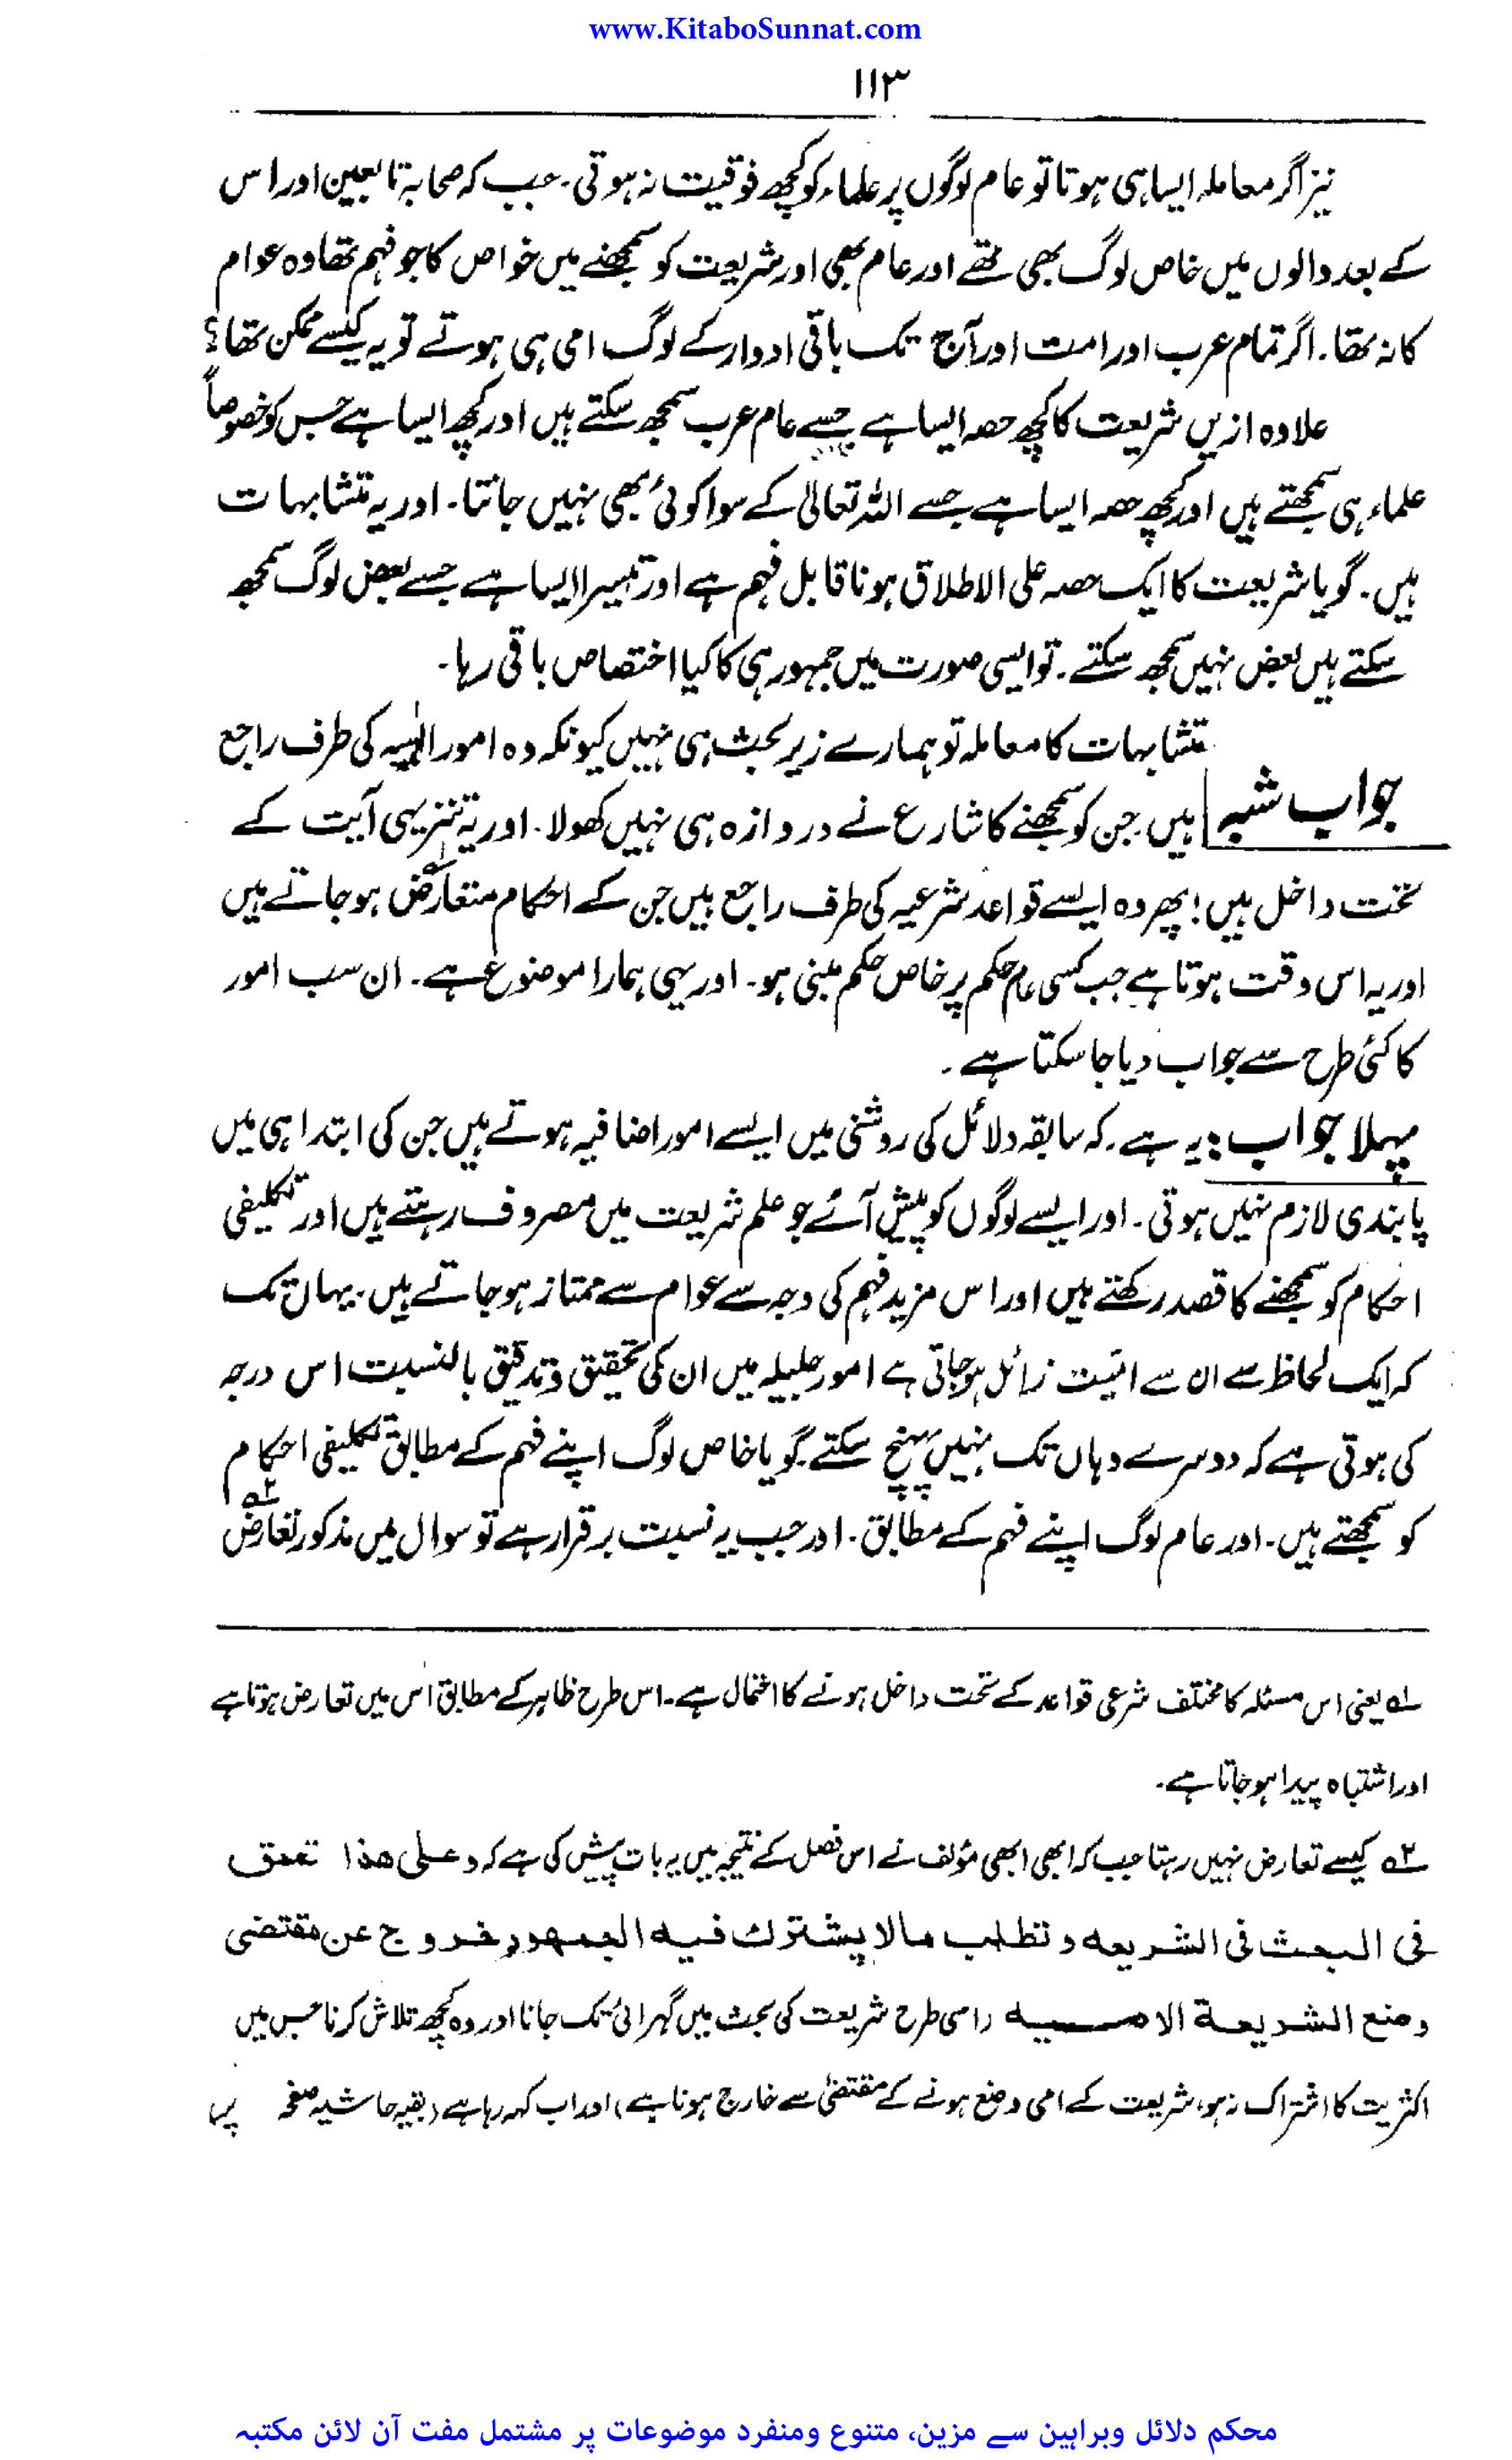 www.KitaboSunnat.com
۱۱۳
نیز اگر معاملہ ایسا ہی ہوتا تو عام لوگوں پر علماء کو کچھ فوقیت نہ ہوتی۔ جب کہ صحابہ تابعین اور اس
کے بعد والوں میں خاص لوگ بھی تھے اور عام بھی اور شریعت کو سمجھنے میں خواص کا جو فہم تھا وہ عوام
کا نہ تھا۔ اگر تمام عرب اور امت اور آج تک باقی ادوار کے لوگ امی ہی ہوتے تو یہ کیسے ممکن تھا؟
علاوہ ازیں شریعت کا کچھ حصہ ایسا ہے جسے عام عرب سمجھ سکتے ہیں اور کچھ ایسا ہے جس کو خصوصاً
علماء ہی سمجھتے ہیں اور کچھ حصہ ایسا ہے جسے اللہ تعالیٰ کے سوا کوئی بھی نہیں جانتا۔ اور یہ متشابہات
ہیں۔ گویا شریعت کا ایک حصہ علی الاطلاق ہونا قابل فہم ہے اور تیسرا ایسا ہے جسے بعض لوگ سمجھ
سکتے ہیں بعض نہیں سمجھ سکتے۔ تو ایسی صورت میں جمہور ہی کا کیا اختصاص باقی رہا۔
متشابہات کا معاملہ تو ہمارے زیر بحث ہی نہیں کیونکہ وہ امور الٰہیہ کی طرف راجع
جواب شبہ
ہیں جن کو سمجھنے کا شارع نے دروازہ ہی نہیں کھولا۔ اور یہ تنزیہی آیت کے
تحت داخل ہیں؛ پھر وہ ایسے قواعد شرعیہ کی طرف راجع ہیں جن کے احکام متعارض ہو جاتے ہیں
اور یہ اس وقت ہوتا ہے جب کسی عام حکم پر خاص حکم مبنی ہو۔ اور یہی ہمارا موضوع ہے۔ ان سب امور
کا کئی طرح سے جواب دیا جا سکتا ہے۔
پہلا جواب: یہ ہے۔ کہ سابقہ دلائل کی روشنی میں ایسے امور اضافیہ ہوتے ہیں جن کی ابتدا ہی میں
پابندی لازم نہیں ہوتی۔ اور ایسے لوگوں کو پیش آئے جو علم شریعت میں مصروف رہتے ہیں اور تکلیفی
احکام کو سمجھنے کا قصد رکھتے ہیں اور اس مزید فہم کی وجہ سے عوام سے ممتاز ہو جاتے ہیں۔ یہاں تک
کہ ایک لحاظ سے ان سے امّیت زائل ہو جاتی ہے امور جلیلہ میں ان کی تحقیق و تدقیق بالنسبت اس درجہ
کی ہوتی ہے کہ دوسرے وہاں تک نہیں پہنچ سکتے گویا خاص لوگ اپنے فہم کے مطابق تکلیفی احکام
کو سمجھتے ہیں۔ اور عام لوگ اپنے فہم کے مطابق۔ اور جب یہ نسبت برقرار ہے تو سوال میں مذکور تعارض ؂۲
؂۱ یعنی اس مسئلہ کا مختلف شرعی قواعد کے تحت داخل ہونے کا احتمال ہے۔ اس طرح ظاہر کے مطابق اس میں تعارض ہوتا ہے
اور اشتباہ پیدا ہو جاتا ہے۔
؂۲ کیسے تعارض نہیں رہتا جب کہ ابھی ابھی مؤلف نے اس فصل کے نتیجہ میں یہ بات پیش کی ہے کہ وعلی هذا تعمق
فی البحث فی الشریعه وتطلب مالا یشترك فیه الجمهور خروج عن مقتضی
وضع الشریعة الامییه (اسی طرح شریعت کی بحث میں گہرائی تک جانا اور وہ کچھ تلاش کرنا جس میں
اکثریت کا اشتراک نہ ہو، شریعت کے امی وضع ہونے کے مقتضیٰ سے خارج ہونا ہے) اور اب کہہ رہا ہے (بقیہ حاشیہ صفحہ پر)
محکم دلائل وبراہین سے مزین، متنوع ومنفرد موضوعات پر مشتمل مفت آن لائن مکتبہ